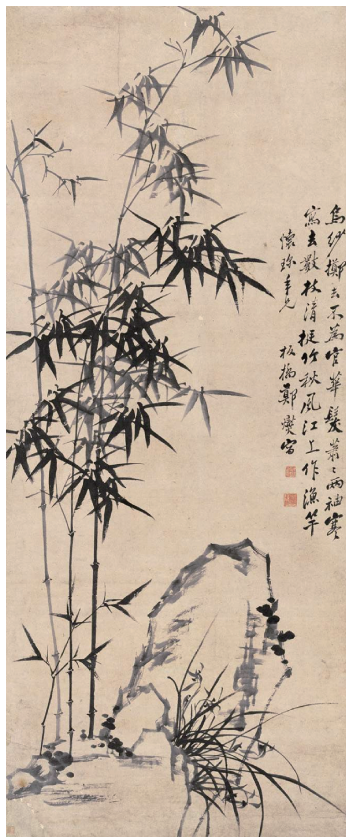 烏紗擲去不為官華髮蕭〻兩袖寒
寫去數枝清挺竹秋風江上作漁竿
年兄 板橋鄭燮寫